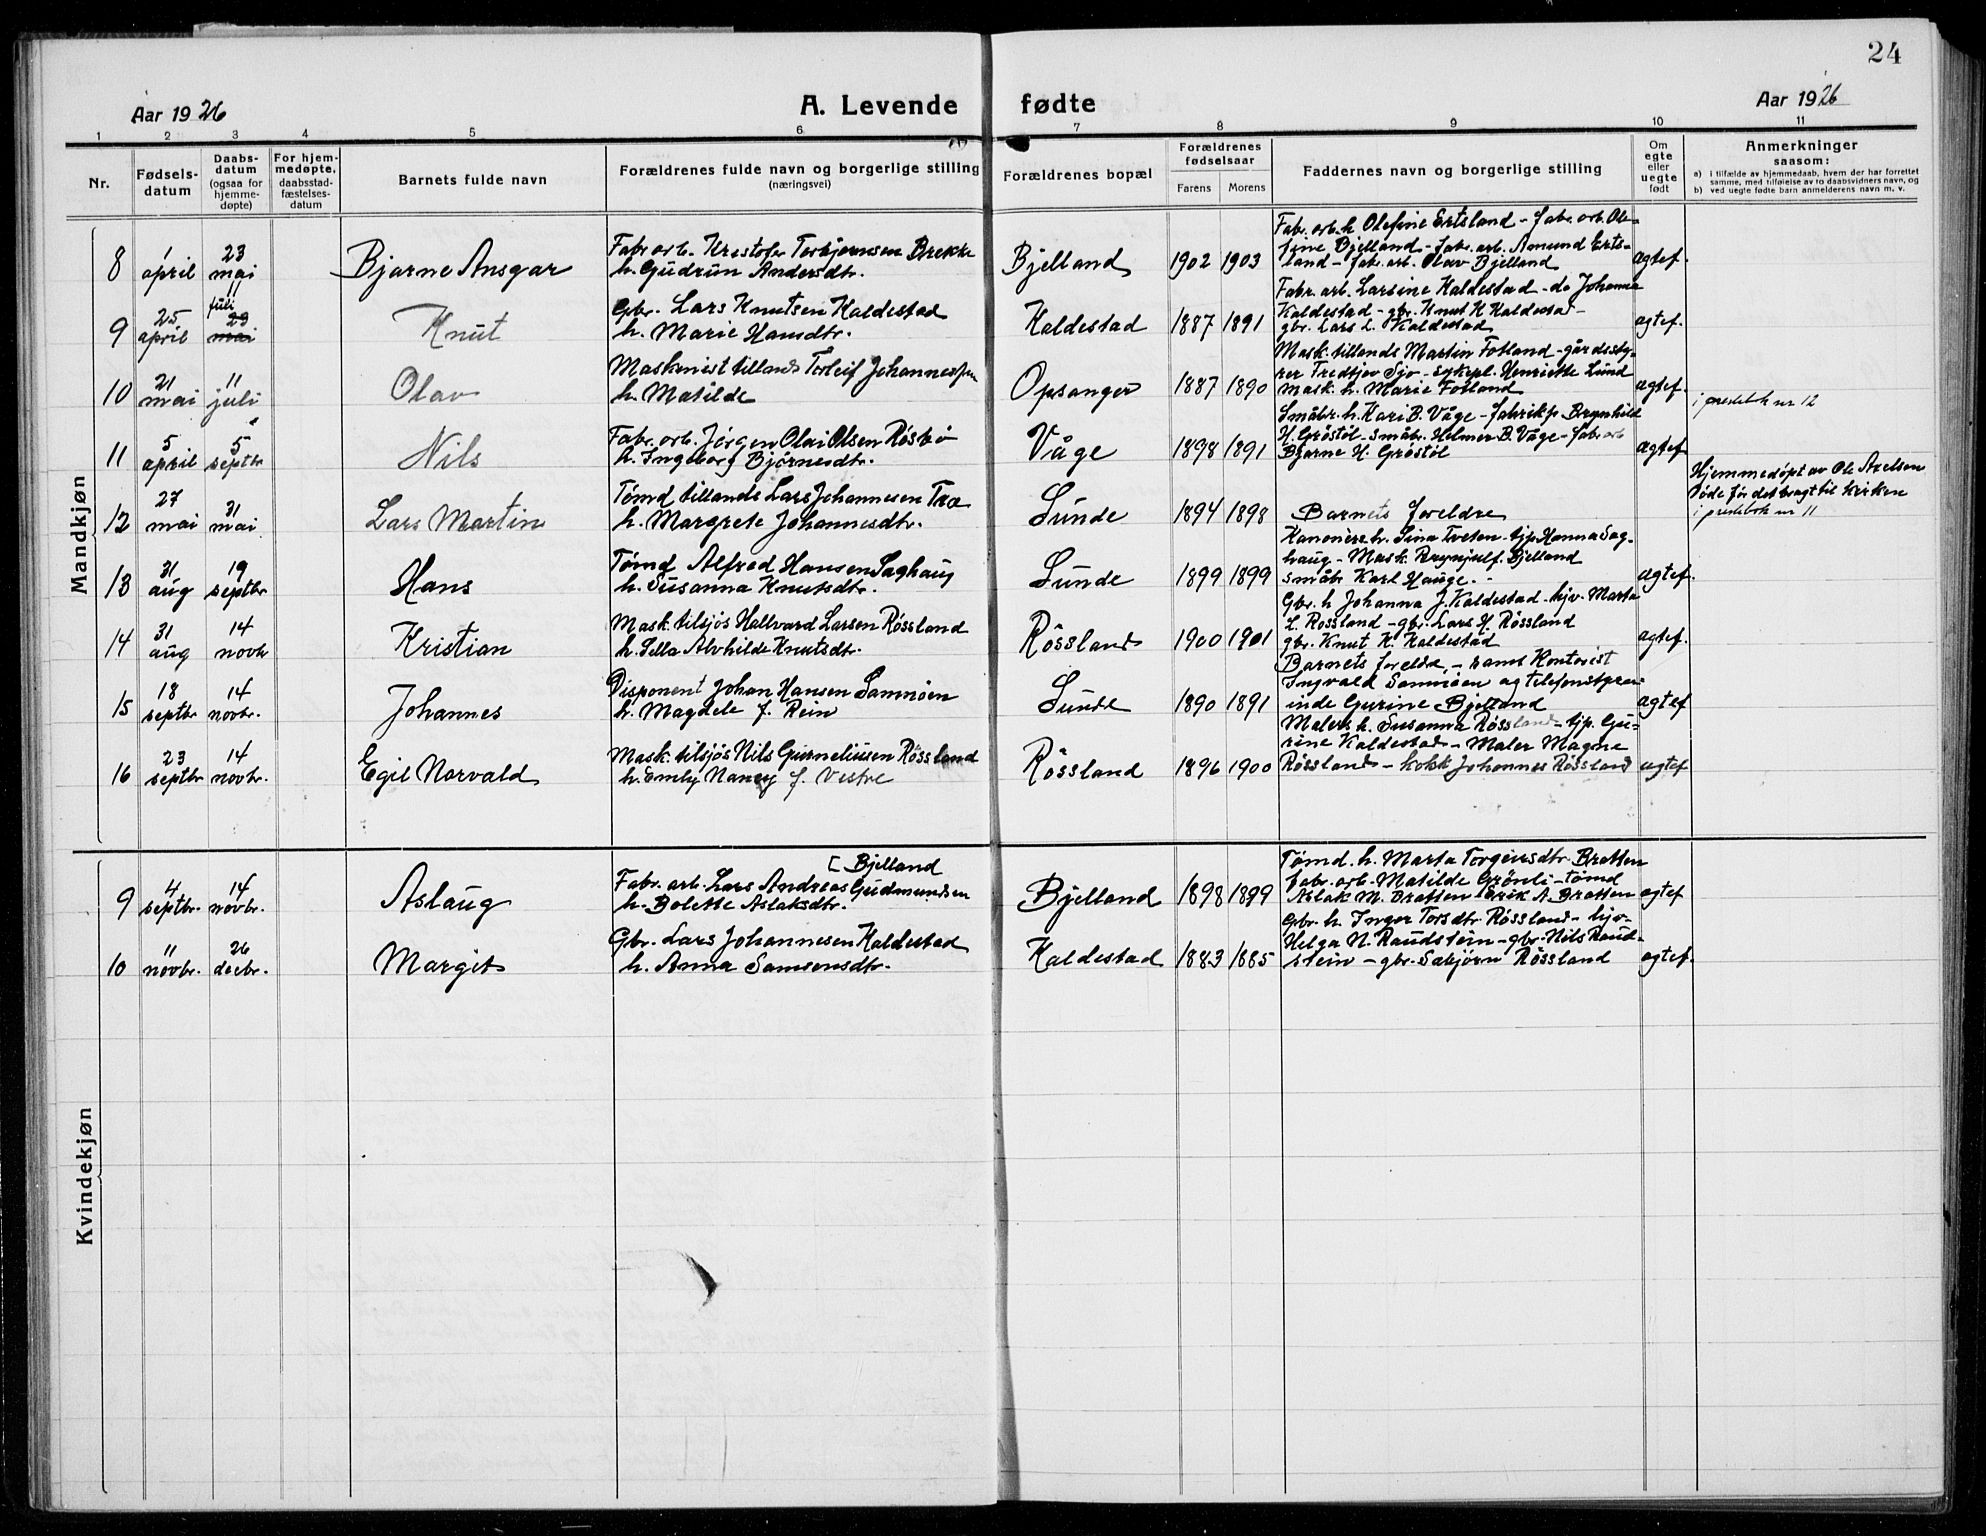 24
Aar 1926
A. Levende fødte
Aar 1926
1 2 3 4 5 6 7 8 9 10 11
Nr.
Fødsels-
datum
Daabs-
datum
(ogsaa for
hjemme-
døpte)
For hjem-
medøpte.
daabsstad-
fæstelses-
datum
Barnets fulde navn
Forældrenes fulde navn og borgerlige stilling
(næringsvei)
Forældrenes bopæl
Forældrenes
fødselsaar
Farens Morens
Faddernes navn og borgerlige stilling
Om
egte
eller
uegte
født
Anmerkninger
saasom:
a) i tilfælde av hjemmedaab, hvem der har forrettet
samme, med tilføielse av to daabsvidners navn, og
b) ved uegte fødte barn anmelderens navn m. v.
Mandkjøn
8
1
april
23
mai
Bjarne Ansgar
Fabr. arb. Kristofer Torbjørnsen Brekke
h. Gudrun Andersdtr.
Bjelland
1902 1903
Fabr. arb. h. Olefine Ertsland - fabr. arb. Ole-
fine Bjelland - fabr. arb. Amund Erts-
land - fabr. arb. Olav Bjelland
ägtef.
9
25
april
11
juli
23
mai
Knut
Gbr. Lars Knutsen Haldestad
h. Marie Hansdtr.
Haldestad
1887 1891
Fabr. arb. Larsine Haldestad - do Johanna
Haldestad - gbr. Knut K Haldestad -
gbr. Lars L. Haldestad
ägtef.
10
21
mai
11
juli
Olav
Maskinist tillands Torleif Johannessen
h. Matilde
Opsanger
1887 1890
Mask. tillands Martin Fotland - gårdsty-
rer Fredtjov Sjo - sykepl. Henriette Lund
mask. h. Marie Fotland
ägtef.
i presteb. nr 12
11
5
april
5
septbr
Nils
Fabr. arb. Jörgen Olai Olsen Røsbø
h. Ingeborg Bjørnesdtr.
Våge
1898 1891
Småbr. h. Kari B. Våge - fabrikp Brynhild
H. Grøstøl - småbr. Helmer B. Våge - fabr. arb
Bjarne H. Grøstøl
ägtef
12
27
mai
31
mai
Lars Martin
Tømd tillands Lars Johannesen Tra
h. Margrete Johannesdtr.
Sunde
1894 1898
Barnets foreldre
Hjemmedøpt av Ole Axelsen
døde før det bragt til kirken
i presteb. nr 11
13
31
aug
19
septbr
Hans
Tømd Alfred Hansen Saghaug
h. Susanna Knutsdtr.
Sunde
1899 1899
Kanonière h. Sina Tveten - tjp. Hanna Sag-
haug - Mask. Brynjulf. Bjelland
småbr. Karl Hauge.
ägtef.
14
31
aug
14
novbr
Kristian
Mask. tilsjøs Hallvard Larsen Røssland
h. Sella Alvhilde Knutsdtr.
Røssland
1900 1901
Gbr. h Johanna J. Haldestad - hjv. Marta
L. Røssland - gbr. Lars H. Røssland
gbr. Knut K. Haldestad
ägtef.
15
18
septbr
14
novbr.
Johannes
Disponent Johan Hansen Samnøen
h. Magdele f. Rein
Sunde
1890 1891
Barnets foreldre, - samt Kontorist
Ingvald Samnøen og telefonstyrer-
inde Gurine Bjelland
ägtef
16
23
septbr
14
novbr.
Egil Norvald
Mask. tilsjøs Nils Gurneliusen Røssland
h. Emly Nancy f. Vestre
Røssland
1896 1900
Malers h. Susanna Røssland - tjp. Gu-
rine Haldestad - Maler Magne
Røssland - kokk Johannes Røssland
ägtef
Kvindekjøn
9
4
septbr.
14
novbr.
Aslaug
[Bjelland
Fabr. arb. Lars Andreas Gudmundsen
h. Bolette Aslaksdtr.
Bjelland
1898 1899
Tømd. h. Marta Torgeirsdtr. Bratten
fabr. arb. Matilde Grönli - tømd
Aslak M. Bratten Erik A. Bratten
ägtef
10
11
novbr.
26
decbr.
Margit
Gbr. Lars Johannesen Haldestad
h. Anna Samsonsdtr.
Haldestad
1883 1885
Gbr. h. Inger Torsdtr. Røssland - hjv.
Helga N. Raudstein - gbr. Nils Raud-
stein - gbr. Sæbjørn Røssland
ägtef.